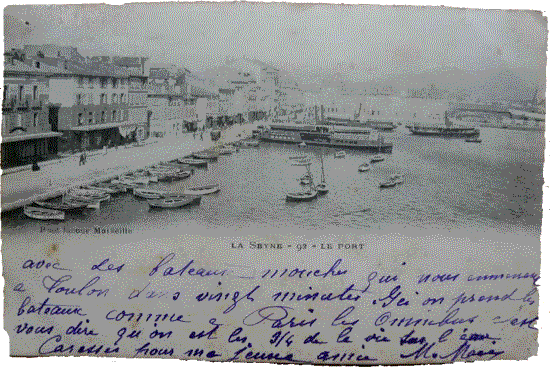 Phot Lacour Marseille
LA SEYNE - 92 - LE PORT
avec des bateaux-mouches qui nous emmènent
à Toulon dans vingt minutes Ici on prend les
bateaux comme à Paris les Omnibus c'est
vous dire qu'on est les 3/4 de la vie sur l'eau.
Caresses pour ma jeune amie M.